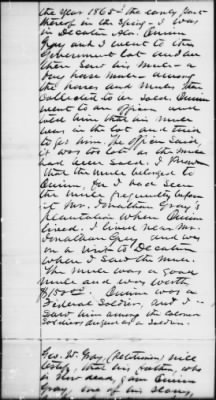 the year 1865 - the early part
thereof in the Spring - I was
in Decatur Ala. Quinn
Gray and I went to the
Government lot and saw
there his mule - a
bay horse mule, among
the horses and mules there
collected to be sold. Quinn
went to an officer and
told him that his mule
was in the lot and tried
to get him. The officer said
it was too late as the mule
had been sold. I know
that the mule belonged to
Quinn, for I had seen
the mule frequently before
at Mr. Jonathan Gray's
plantation where Quinn
lived. I lived near Mr.
Jonathan Gray and was
on a visit to Decatur
when I saw the mule.
The mule was a good
mule and was worth
Quinn was a
Federal Soldier, and I
saw him among the colored
soldiers as a Soldier.
Geo. W. Gray, (Petitioner) will
testify, that his father, who
is now dead, gave Quinn
Gray, one of his slaves,